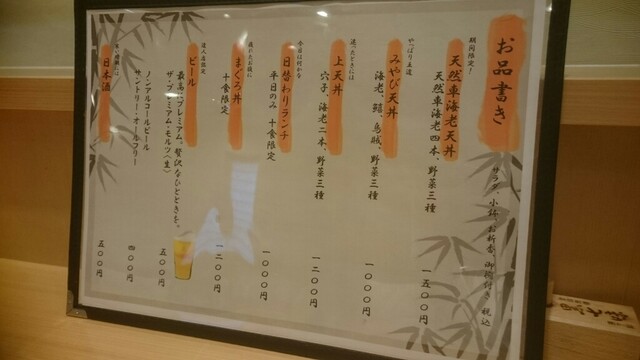 お品書き
サラダ、小鉢、お新香、御椀付き 税込
期間限定!
天然車海老天丼
天然車海老四本、野菜三種
一五〇〇円
やっぱり王道
みやび天丼
海老、鱚、烏賊、野菜三種
一〇〇〇円
迷ったときには
上天丼
穴子、海老二本、野菜三種
一二〇〇円
今日は何かな
日替わりランチ
平日のみ 十食限定
一〇〇〇円
疲れたお体に
まぐろ丼
十食限定
一二〇〇円
達人店限定
ビール
最高にプレミアム、贅沢なひとときを。
ザ・プレミアム・モルツ〈生〉
五〇〇円
ノンアルコールビール
サントリー・オールフリー
四〇〇円
日本酒
五〇〇円